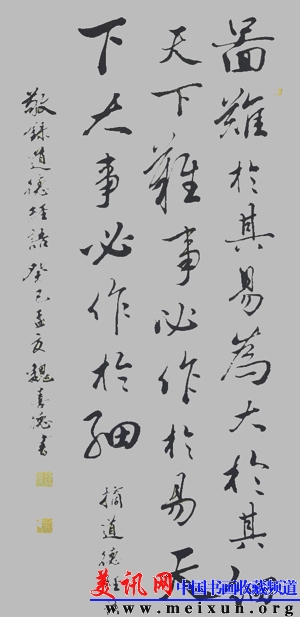 啚難於其易為大於其細
天下難事必作於易天
下大事必作於細
摘道德經
敬錄道德經語癸巳孟夏魏喜書
美讯网 中国书画收藏频道
www.meixun.org